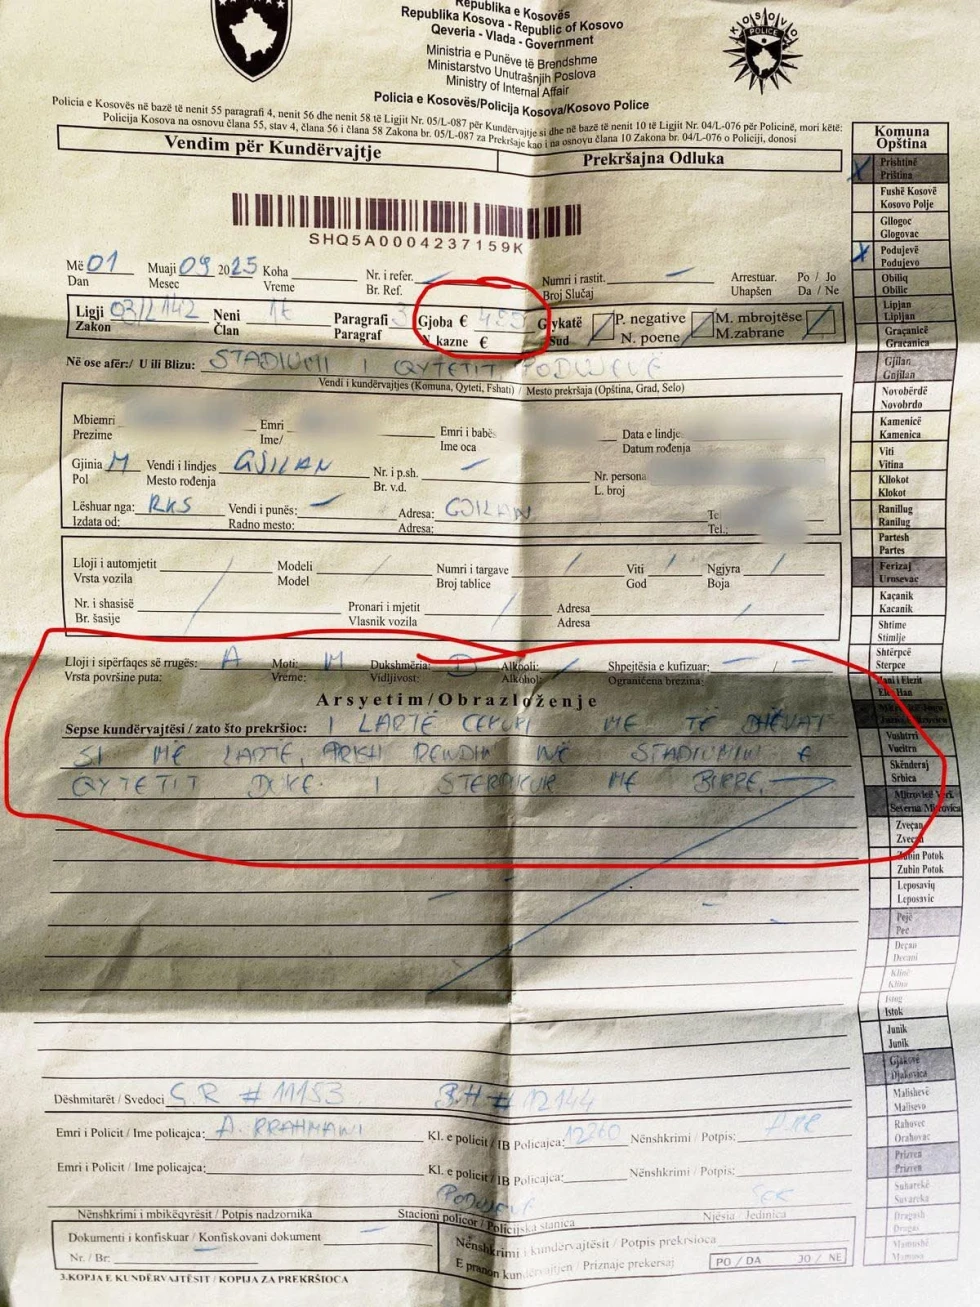 Republika e Kosovës
Republika Kosova - Republic of Kosovo
Qeveria - Vlada - Government
Ministria e Punëve të Brendshme
Ministarstvo Unutrašnjih Poslova
Ministry of Internal Affair
Policia e Kosovës/Policija Kosova/Kosovo Police
KOSOVO
POLICE
Policia e Kosovës në bazë të nenit 55 paragrafi 4, nenit 56 dhe nenit 58 të Ligjit Nr. 05/L-087 për Kundërvajtje si dhe në bazë të nenit 10 të Ligjit Nr. 04/L-076 për Policinë, mori këtë:
Policija Kosova na osnovu člana 55, stav 4, člana 56 i člana 58 Zakona br. 05/L-087 za Prekršaje kao i na osnovu člana 10 Zakona br. 04/L-076 o Policiji, donosi
Vendim për Kundërvajtje Prekršajna Odluka
SHQ5A0004237159K
Më 01 Muaji 09 2025 Koha Nr. i refer. Numri i rastit. Arrestuar. Po / Jo
Dan Mesec Vreme Br. Ref. Broj Slučaj Uhapšen Da / Ne
Ligji 03/L142 Neni Paragrafi 3 Gjoba € P. negative M. mbrojtëse
Zakon Član Paragraf kazne € Sud N. poene M.zabrane
Në ose afër:/ U ili Blizu: STADIUMI I QYTETIT, PODUJEVË
Vendi i kundërvajtjes (Komuna, Qyteti, Fshati) / Mesto prekršaja (Opština, Grad, Selo)
Mbiemri Emri Emri i babës Data e lindje
Prezime Ime/ Ime oca Datum rođenja
Gjinia M Vendi i lindjes GJILAN Nr. i p.sh. Nr. persona
Pol Mesto rođenja Br. v.d. L. broj
Lëshuar nga: RKS Vendi i punës: Adresa: GJILAN
Izdata od: Radno mesto: Adresa: Tel.:
Lloji i automjetit Modeli Numri i targave Viti Ngjyra
Vrsta vozila Model Broj tablice God Boja
Nr. i shasisë Pronari i mjetit Adresa
Br. šasije Vlasnik vozila Adresa
Lloji i sipërfaqes së rrugës: A Moti: M Dukshmëria: D Alkooli: Shpejtësia e kufizuar:
Vrsta površine puta: Vreme: Vidljivost: Alkohol: Ograničena brezina:
Arsyetim/Obrazloženje
Sepse kundërvajtësi / zato što prekršioc: I LARTË CEKURI ME TË DHËNAT
SI MË LARTË, PRISH RENDIN NË STADIUMIN E
QYTETIT DUKE I STERPIKUR ME BIRRE.
Dëshmitarët / Svedoci S.R # 11153 B.H # 12144
Emri i Policit / Ime policajca: A. RRAHMANI Kl. e policit / IB Policajca: Nënshkrimi / Potpis:
Emri i Policit / Ime policajca: Kl. e policit / IB Policajca: Nënshkrimi / Potpis:
PODUJEVË
Nënshkrimi i mbikëqyrësit / Potpis nadzornika Stacioni policor / Policijska stanica Njësia / Jedinica
Dokumenti i konfiskuar / Konfiskovani dokument Nënshkrimi i kundërvajtësit / Potpis prekrsioca
Nr. / Br: E pranon kundërvajtjen / Priznaje prekersaj PO / DA JO / NE
3.KOPJA E KUNDËRVAJTËSIT / KOPIJA ZA PREKRŠIOCA
Komuna
Opština
Prishtinë
Priština
Fushë Kosovë
Kosovo Polje
Gllogoc
Glogovac
Podujevë
Podujevo
Obiliq
Obilic
Lipjan
Lipljan
Graçanicë
Gracanica
Gjilan
Gnjilan
Novobërdë
Novobrdo
Kamenicë
Kamenica
Viti
Vitina
Kllokot
Klokot
Ranillug
Ranilug
Partesh
Partes
Ferizaj
Urosevac
Kaçanik
Kacanik
Shtime
Stimlje
Shtërpcë
Sterpce
Hani i Elezit
Vushtrri
Vucitrn
Skënderaj
Srbica
Mitrovicë Veri.
Severna Mitrovica
Zveçan
Zvecan
Zubin Potok
Zubin Potok
Leposaviq
Leposavic
Pejë
Pec
Deçan
Decani
Klinë
Klina
Istog
Istok
Junik
Junik
Gjakovë
Djakovica
Malishevë
Malisevo
Rahovec
Orahovac
Prizren
Prizren
Suharekë
Suvareka
Dragash
Dragas
Mamushë
Mamusa